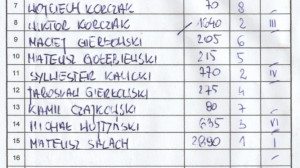 7 WOJCIECH KORCZAK 70 8
8 WIKTOR KORCZAK 1640 2 III
9 MACIEJ GIERŁOWSKI 205 6
10 MATEUSZ 215 5
11 SYLWESTER KALICKI 770 2 IV
12 JAROSŁAW GIERŁOWSKI 275 4
13 KAMIL CZAJKOWSKI 80 7
14 MICHAŁ 635 3 VI
15 MATEUSZ SAŁACH 2890 1 I
16